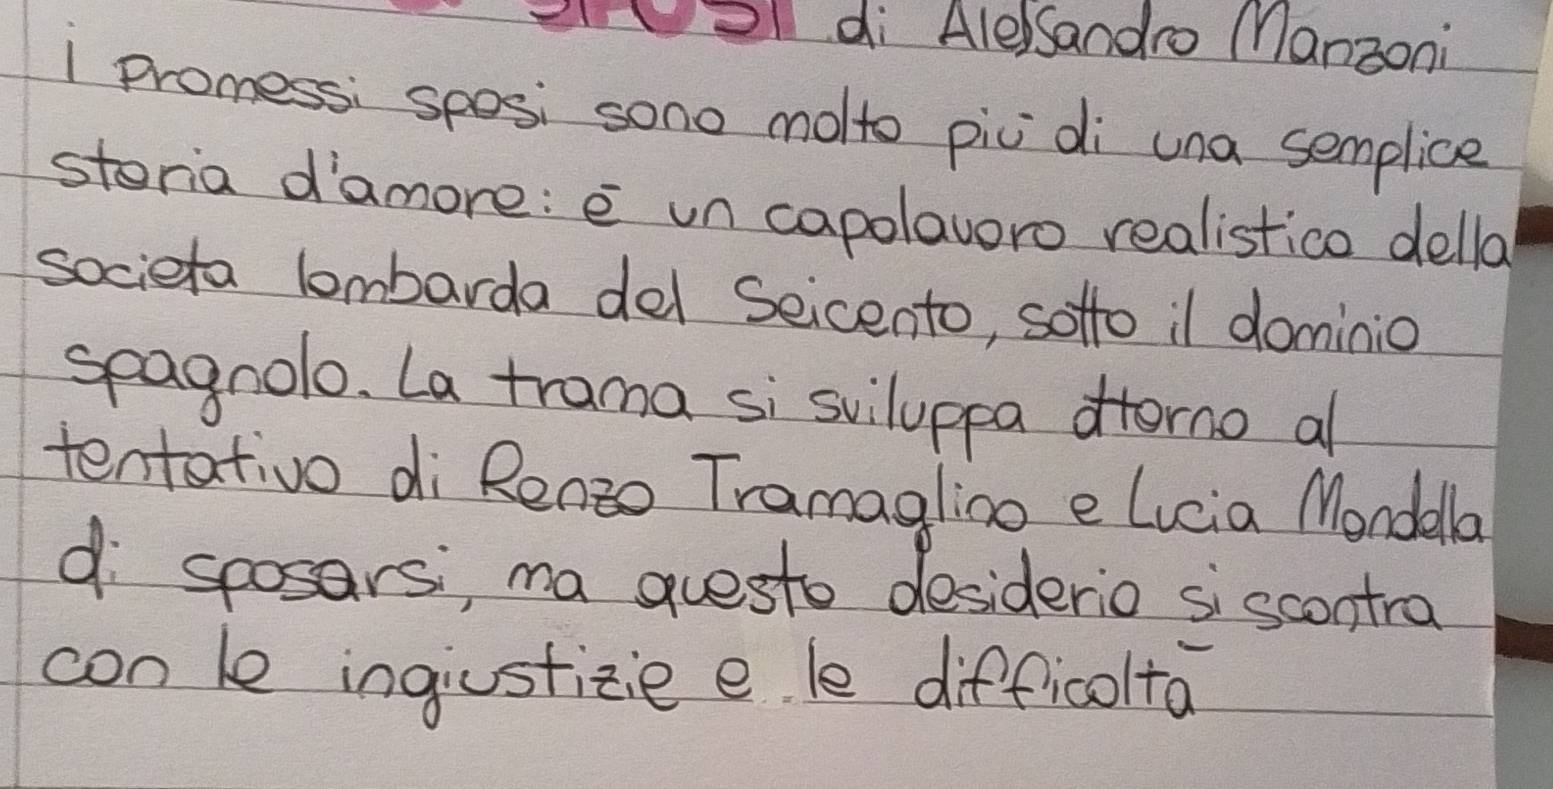 di Alessandro Manzoni
i promessi sposi sono molto più di una semplice
storia d'amore: è un capolavoro realistico della
societa lombarda del Seicento, sotto il dominio
spagnolo. La trama si sviluppa attorno al
tentativo di Renzo Tramaglino e Lucia Mondella
di sposarsi, ma questo desiderio si scontra
con le ingiustizie e le difficoltà